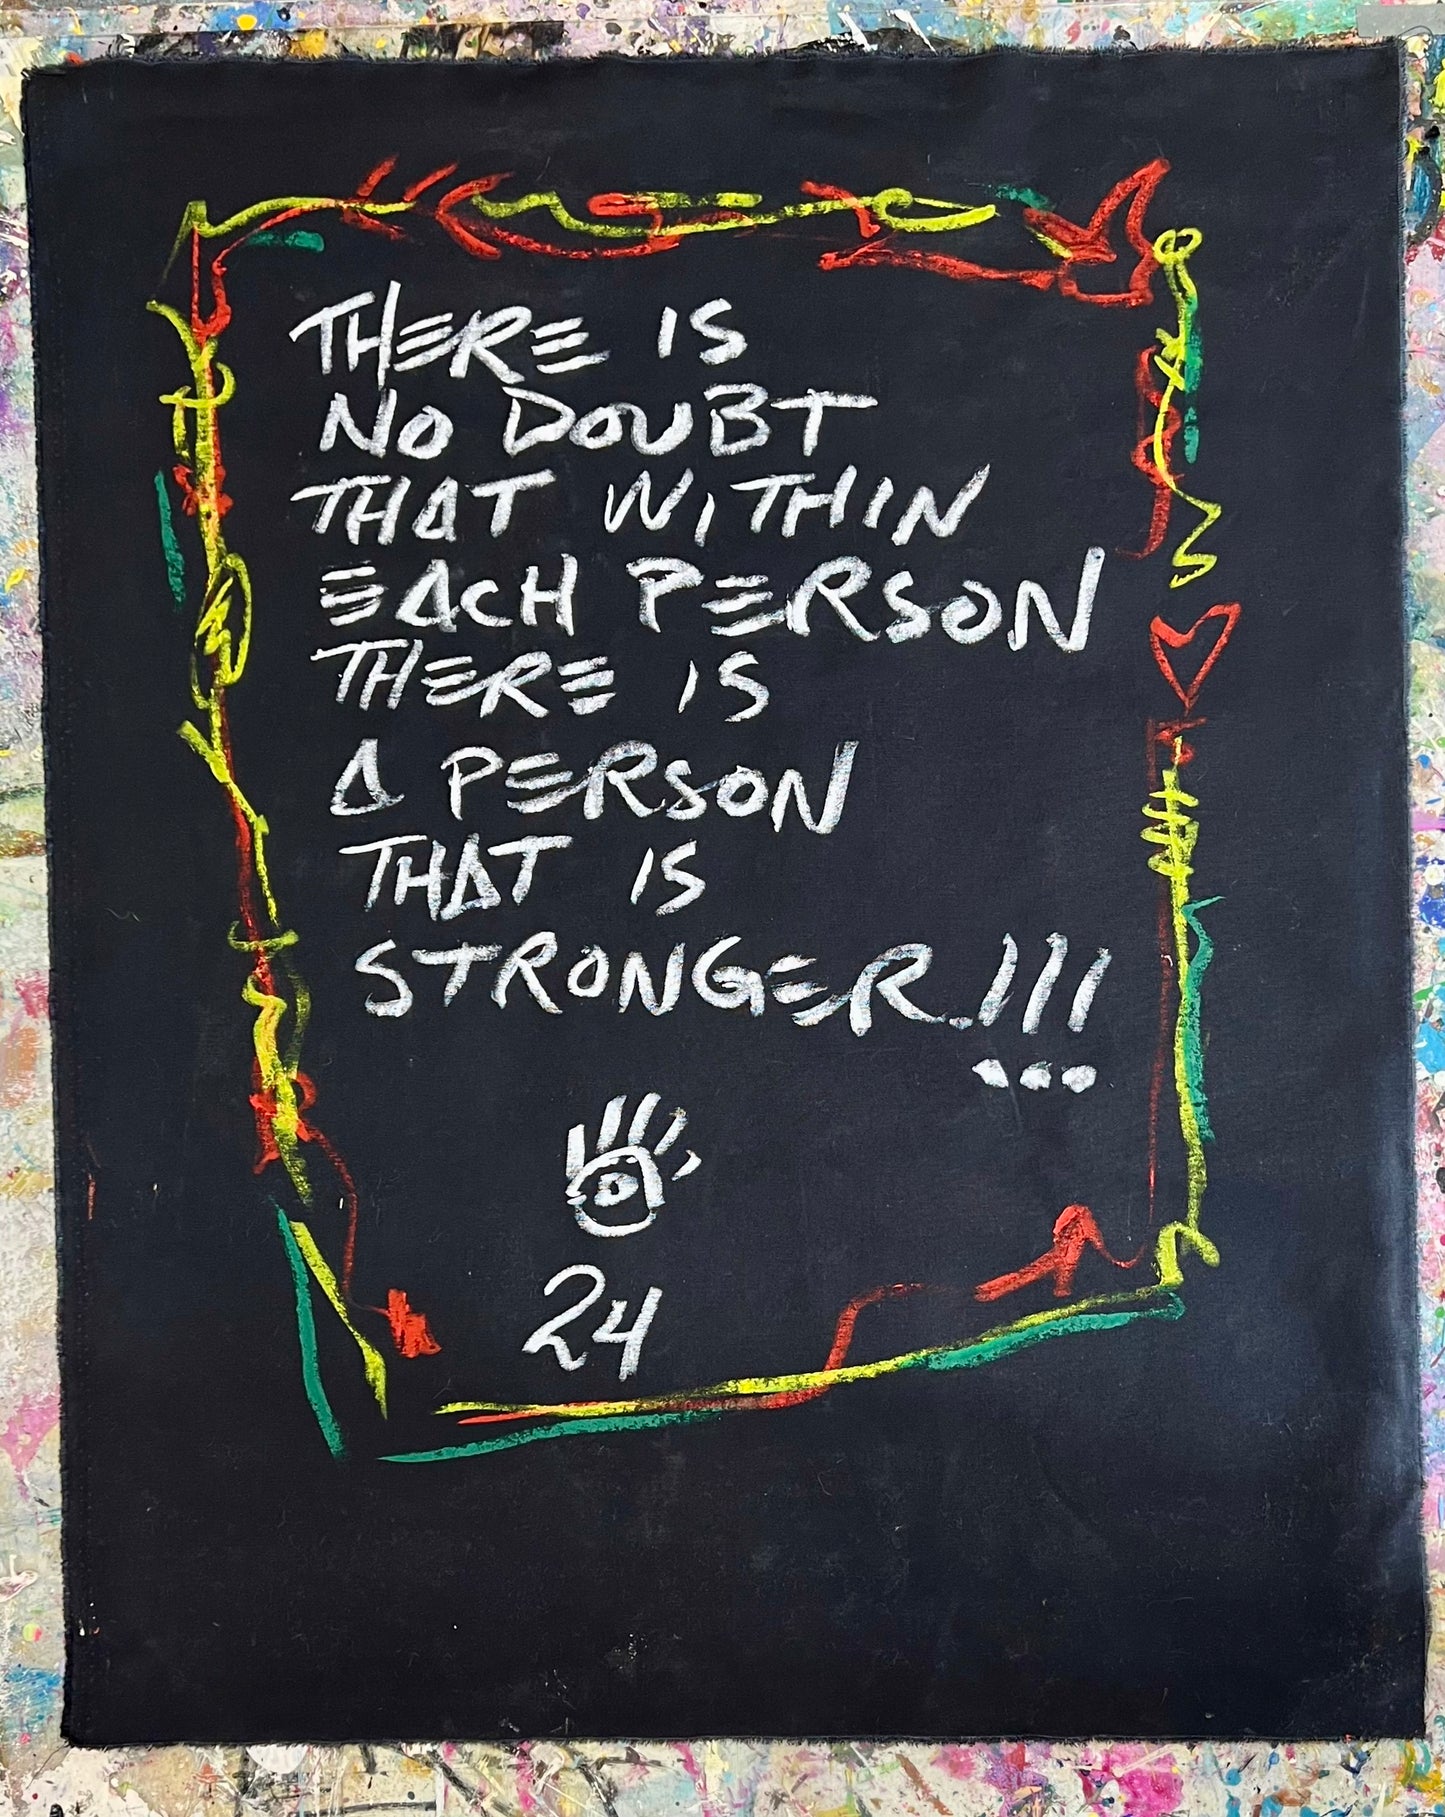 THERE IS
NO DOUBT
THAT WITHIN
EACH PERSON
THERE IS
A PERSON
THAT IS
STRONGER.!!!
...
24